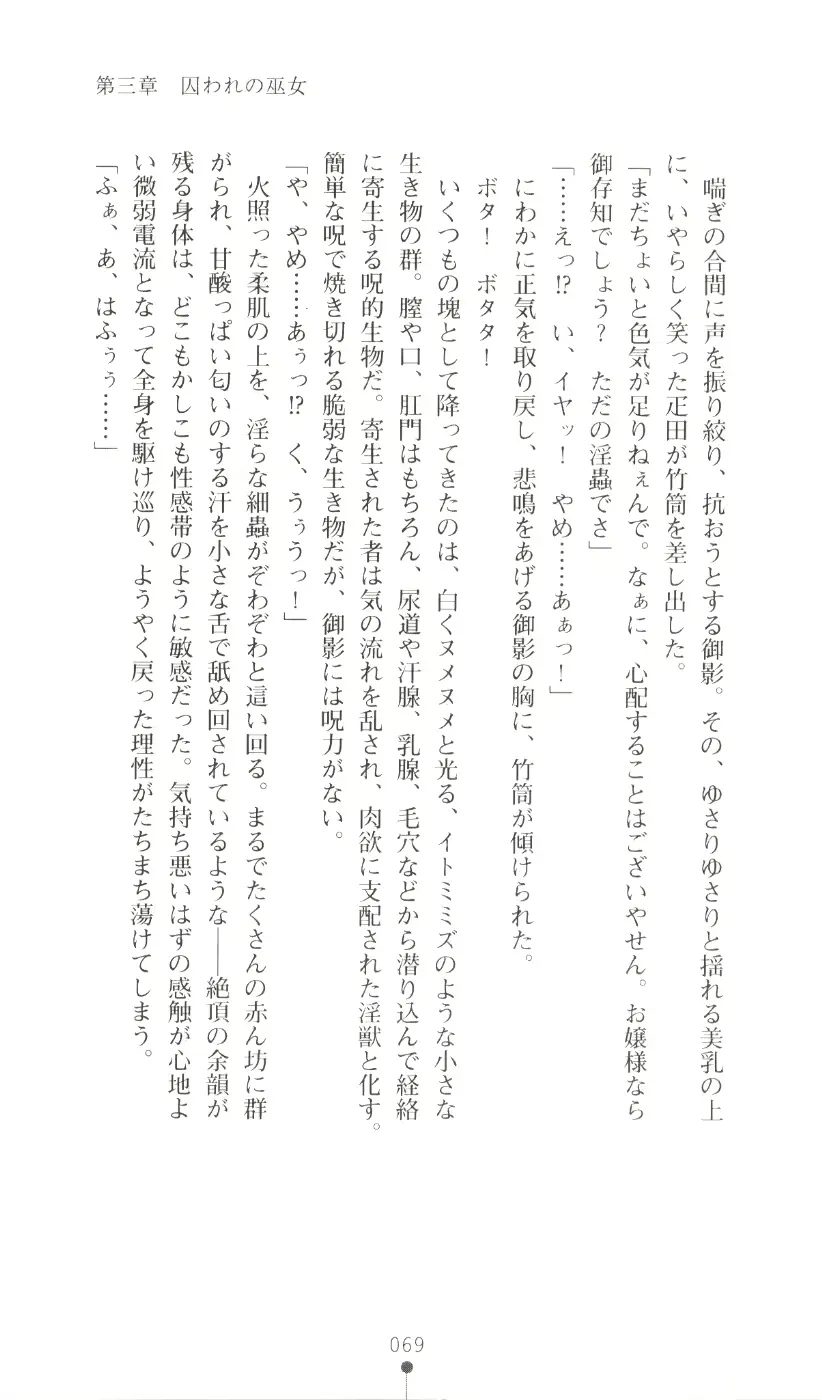 第三章　囚われの巫女
　喘ぎの合間に声を振り絞り、抗おうとする御影。その、ゆさりゆさりと揺れる美乳の上
に、いやらしく笑った疋田が竹筒を差し出した。
「まだちょいと色気が足りねぇんで。なぁに、心配することはございやせん。お嬢様なら
御存知でしょう？　ただの淫蟲でさ」
「……えっ!?　い、イヤッ！　やめ……あぁっ！」
　にわかに正気を取り戻し、悲鳴をあげる御影の胸に、竹筒が傾けられた。
　ボタ！　ボタタ！
　いくつもの塊として降ってきたのは、白くヌメヌメと光る、イトミミズのような小さな
生き物の群。膣や口、肛門はもちろん、尿道や汗腺、乳腺、毛穴などから潜り込んで経絡
に寄生する呪的生物だ。寄生された者は気の流れを乱され、肉欲に支配された淫獣と化す。
簡単な呪で焼き切れる脆弱な生き物だが、御影には呪力がない。
「や、やめ……あぅっ!?　く、うぅうっ！」
　火照った柔肌の上を、淫らな細蟲がぞわぞわと這い回る。まるでたくさんの赤ん坊に群
がられ、甘酸っぱい匂いのする汗を小さな舌で舐め回されているような――絶頂の余韻が
残る身体は、どこもかしこも性感帯のように敏感だった。気持ち悪いはずの感触が心地よ
い微弱電流となって全身を駆け巡り、ようやく戻った理性がたちまち蕩けてしまう。
「ふぁ、あ、はふぅぅ……」
069